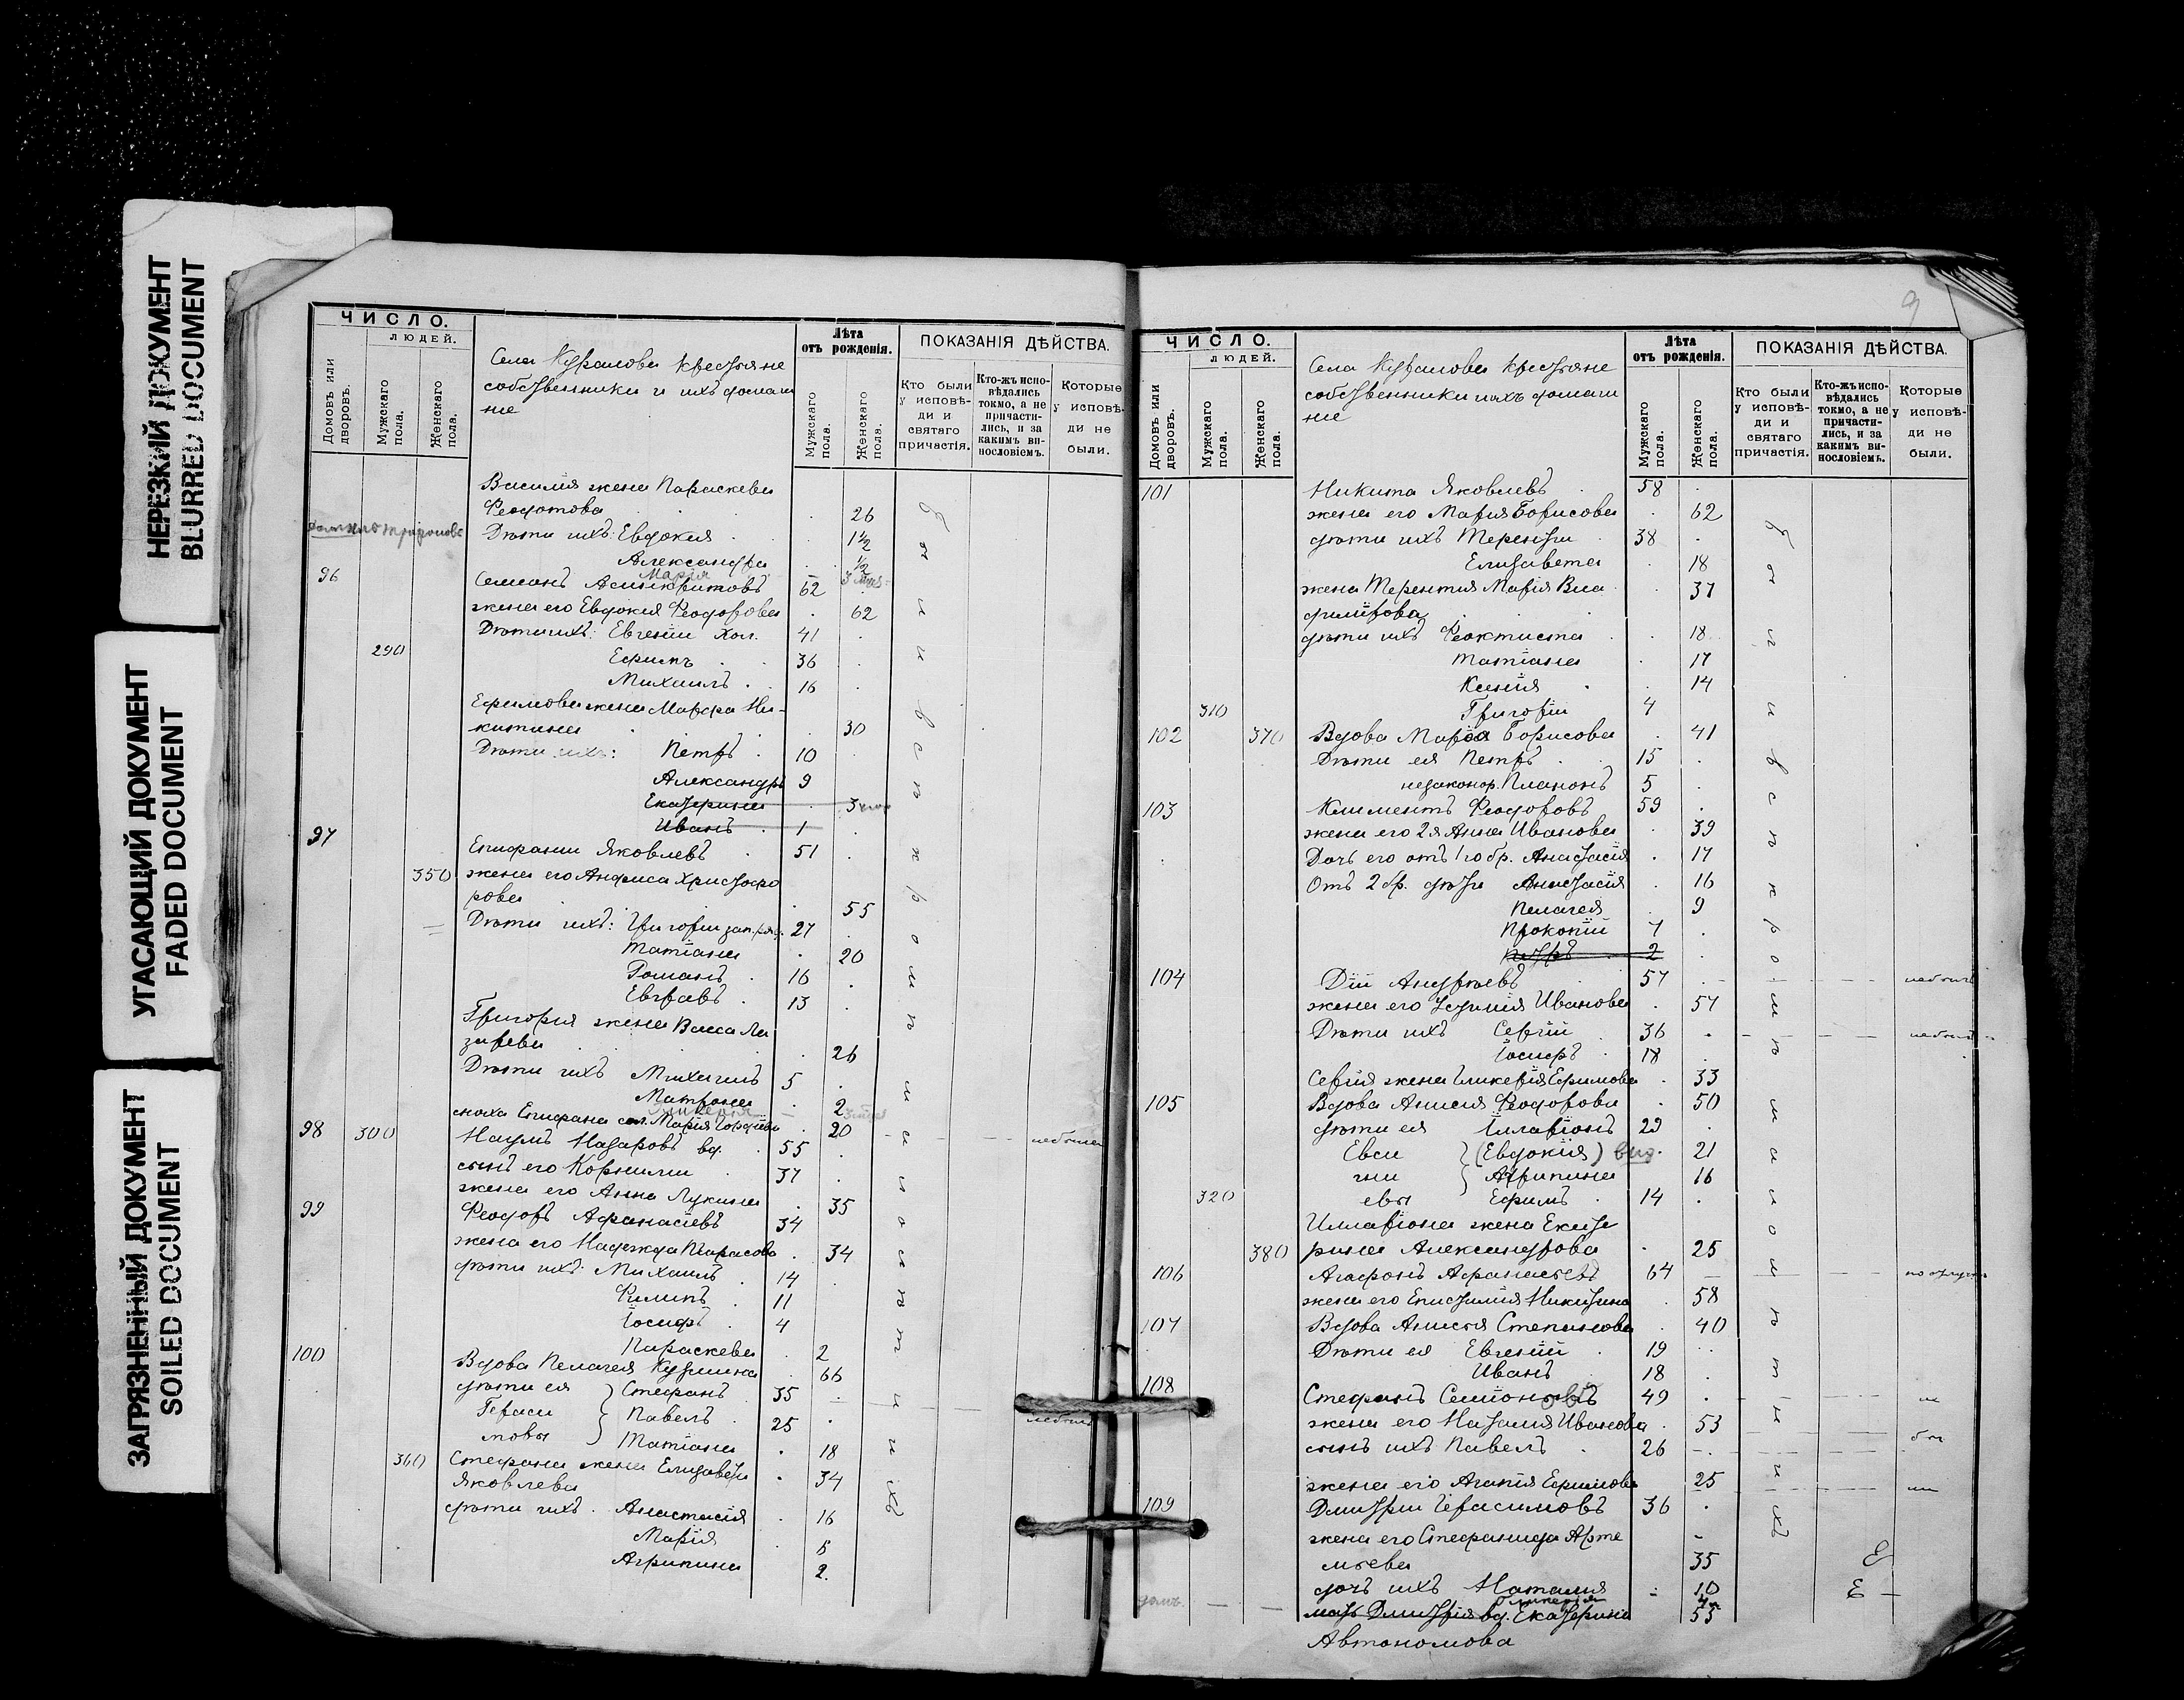 НЕРЕЗКИЙ ДОКУМЕНТ
BLURRED DOCUMENT
УГАСАЮЩИЙ ДОКУМЕНТ
FADED DOCUMENT
ЗАГРЯЗНЕННЫЙ ДОКУМЕНТ
SOILED DOCUMENT
ЧИСЛО.
ЛЮДЕЙ.
Домовъ или дворовъ.
Мужскаго пола.
Женскаго пола.
крестьяне
собственники и ихъ домаш
ніе
Лѣта отъ рожденія.
Мужскаго пола.
Женскаго пола.
ПОКАЗАНІЯ ДѢЙСТВА.
Кто были у исповѣди и святаго причастія.
Кто-жъ исповѣдались токмо, а не причастились, и за какимъ винословіемъ.
Которые у исповѣди не были.
Василія жена Параскева
Феодотова 26
Дѣти ихъ: Евдокія 1½
Александра ½
Марія
96 Семіонъ Асинкритовъ 62
жена его Евдокія Феодорова 62
Дѣти ихъ: Евгеній хол. 41
290 Ефимъ 36
Михаилъ 16
Ефимова жена Марфа Ни-
китина 30
Дѣти ихъ: Петръ 10
Александръ 9
Екатерина 3
Иванъ 1
97 Епифаній Яковлевъ 51
350 жена его Анфиса Христофо
рова 55
Дѣти ихъ: Григорій 27
Матіана 20
Романъ 16
Евграфъ 13
Григорія жена Васса Ла
зарева 26
Дѣти ихъ Михаилъ 5
Матрона 2
Гликерія
сноха Епифана Марія Гордіева 20
98 300 Наумъ Назаровъ вд. 55
сынъ его Корнилій 37
жена его Анна Лукина 35
99 Феодоръ Афанасіевъ 34
жена его Надежда Тарасова 34
дѣти ихъ: Михаилъ 14
Филипъ 11
Іосифъ 4
Параскева 2
100 Вдова Пелагея Кузмина 66
дѣти ея Стефанъ 35
Гераси Павелъ 25
мовы Татіана 18
360 Стефана жена Елизавета
Яковлева 34
дѣти ихъ Анастасія 16
Марія 5
Агрипина 2
9
ЧИСЛО.
ЛЮДЕЙ.
Домовъ или дворовъ.
Мужскаго пола.
Женскаго пола.
крестьяне
собственники и ихъ домаш
ніе
Лѣта отъ рожденія.
Мужскаго пола.
Женскаго пола.
ПОКАЗАНІЯ ДѢЙСТВА.
Кто были у исповѣди и святаго причастія.
Кто-жъ исповѣдались токмо, а не причастились, и за какимъ винословіемъ.
Которые у исповѣди не были.
101 Никита Яковлевъ 58
жена его Марія Борисова 62
дѣти ихъ Терентій 38
Елизавета 18
жена Терентія Марія Вла
димірова 37
дѣти ихъ Феоктиста 18
Татіана 17
Ксенія 14
310 Григорій 4
102 370 Вдова Марія Борисова 41
Дѣти ея Петръ 15
незаконор. Платонъ 5
103 Климентъ Феодоровъ 59
жена его 2я Анна Иванова 39
Дочь его отъ 1го бр. Анастасія 17
Отъ 2 бр. дѣти Анастасія 16
Пелагея 9
Прокопій 7
Петръ 2
104 Дій Андреевъ 57
жена его Іустинія Иванова 57
Дѣти ихъ Сергій 36
Іосифъ 18
Сергія жена Гликерія Ефимова 33
105 Вдова Анисія Феодорова 50
дѣти ея Илларіонъ 29
Евси (Евдокія) 21
гни Агрипина 16
320 евы Ефимъ 14
Илларіона жена Екате
380 рина Александрова 25
106 Агафонъ Афанасьевъ 64
жена его Епистимія Никитина 58
107 Вдова Анисія Степанова 40
Дѣти ея Евгеній 19
Иванъ 18
108 Стефанъ Семіоновъ 49
жена его Наталія Иванова 53
сынъ ихъ Павелъ 26
жена его Агапія Ефимова 25
109 Димитрій Герасимовъ 36
жена его Стефанида Арте
мьева 35
дочь ихъ Наталія 10
Гликерія
мать Димитрія вд. Екатерина 55
Автономова